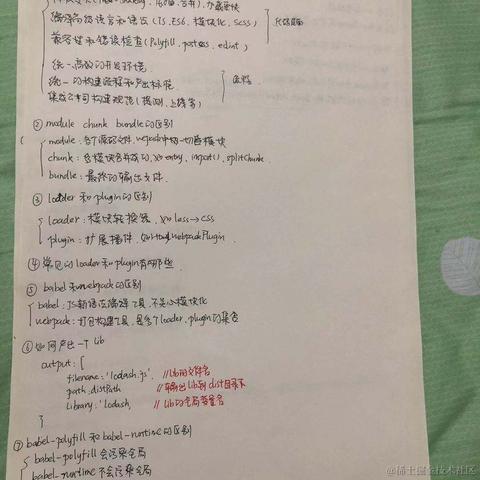 编译高级语言和语法(TS, ES6, 模块化, scss)
兼容性和错误检查(Polyfill, postcss, eslint)
统一高效的开发环境
统一的构建流程和产出标准
集成公司构建规范(提测、上线等)
② module chunk bundle的区别
module: 各个源码文件, webpack中一切皆模块
chunk: 多模块合并成的, 如entry, import(), splitChunk
bundle: 最终的输出文件
③ loader和plugin的区别
loader: 模块转换器, 如less→css
plugin: 扩展插件, 如HtmlWebpackPlugin
④ 常见的loader和plugin有哪些
⑤ babel和webpack的区别
babel: JS新语法编译工具, 不关心模块化
webpack: 打包构建工具, 是多个loader, plugin的集合
⑥ 如何产出一个lib
output: {
filename: 'lodash.js', //lib的文件名
path: distPath //输出lib到dist目录下
library: 'lodash, // lib的全局变量名
}
⑦ babel-polyfill和babel-runtime的区别
babel-polyfill会污染全局
babel-runtime不会污染全局
@稀土掘金技术社区